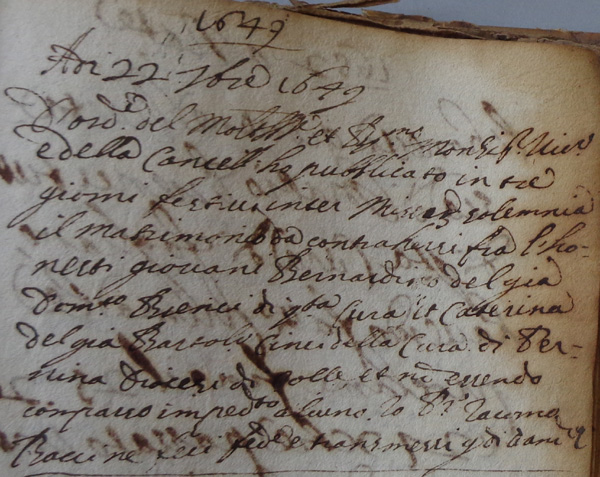 1649
Adi 22 7bre 1649
D'ord.e del Molt Ill.e et R.mo Monsig.r Vic.o
e della Cancell.a ho pubblicato in tre
giorni festivi inter Missar. solemnia
il matrimonio da contrahersi fra l'ho-
nesti giovani Bernardino del già
Dom.co di q.ta Cura et Caterina
del già Bartol.o Cinci della Cura di
Dioces. di Colle, et nō essendo
comparso imped.to alcuno. Io P.e Iacomo
ne feci fede e transmessi